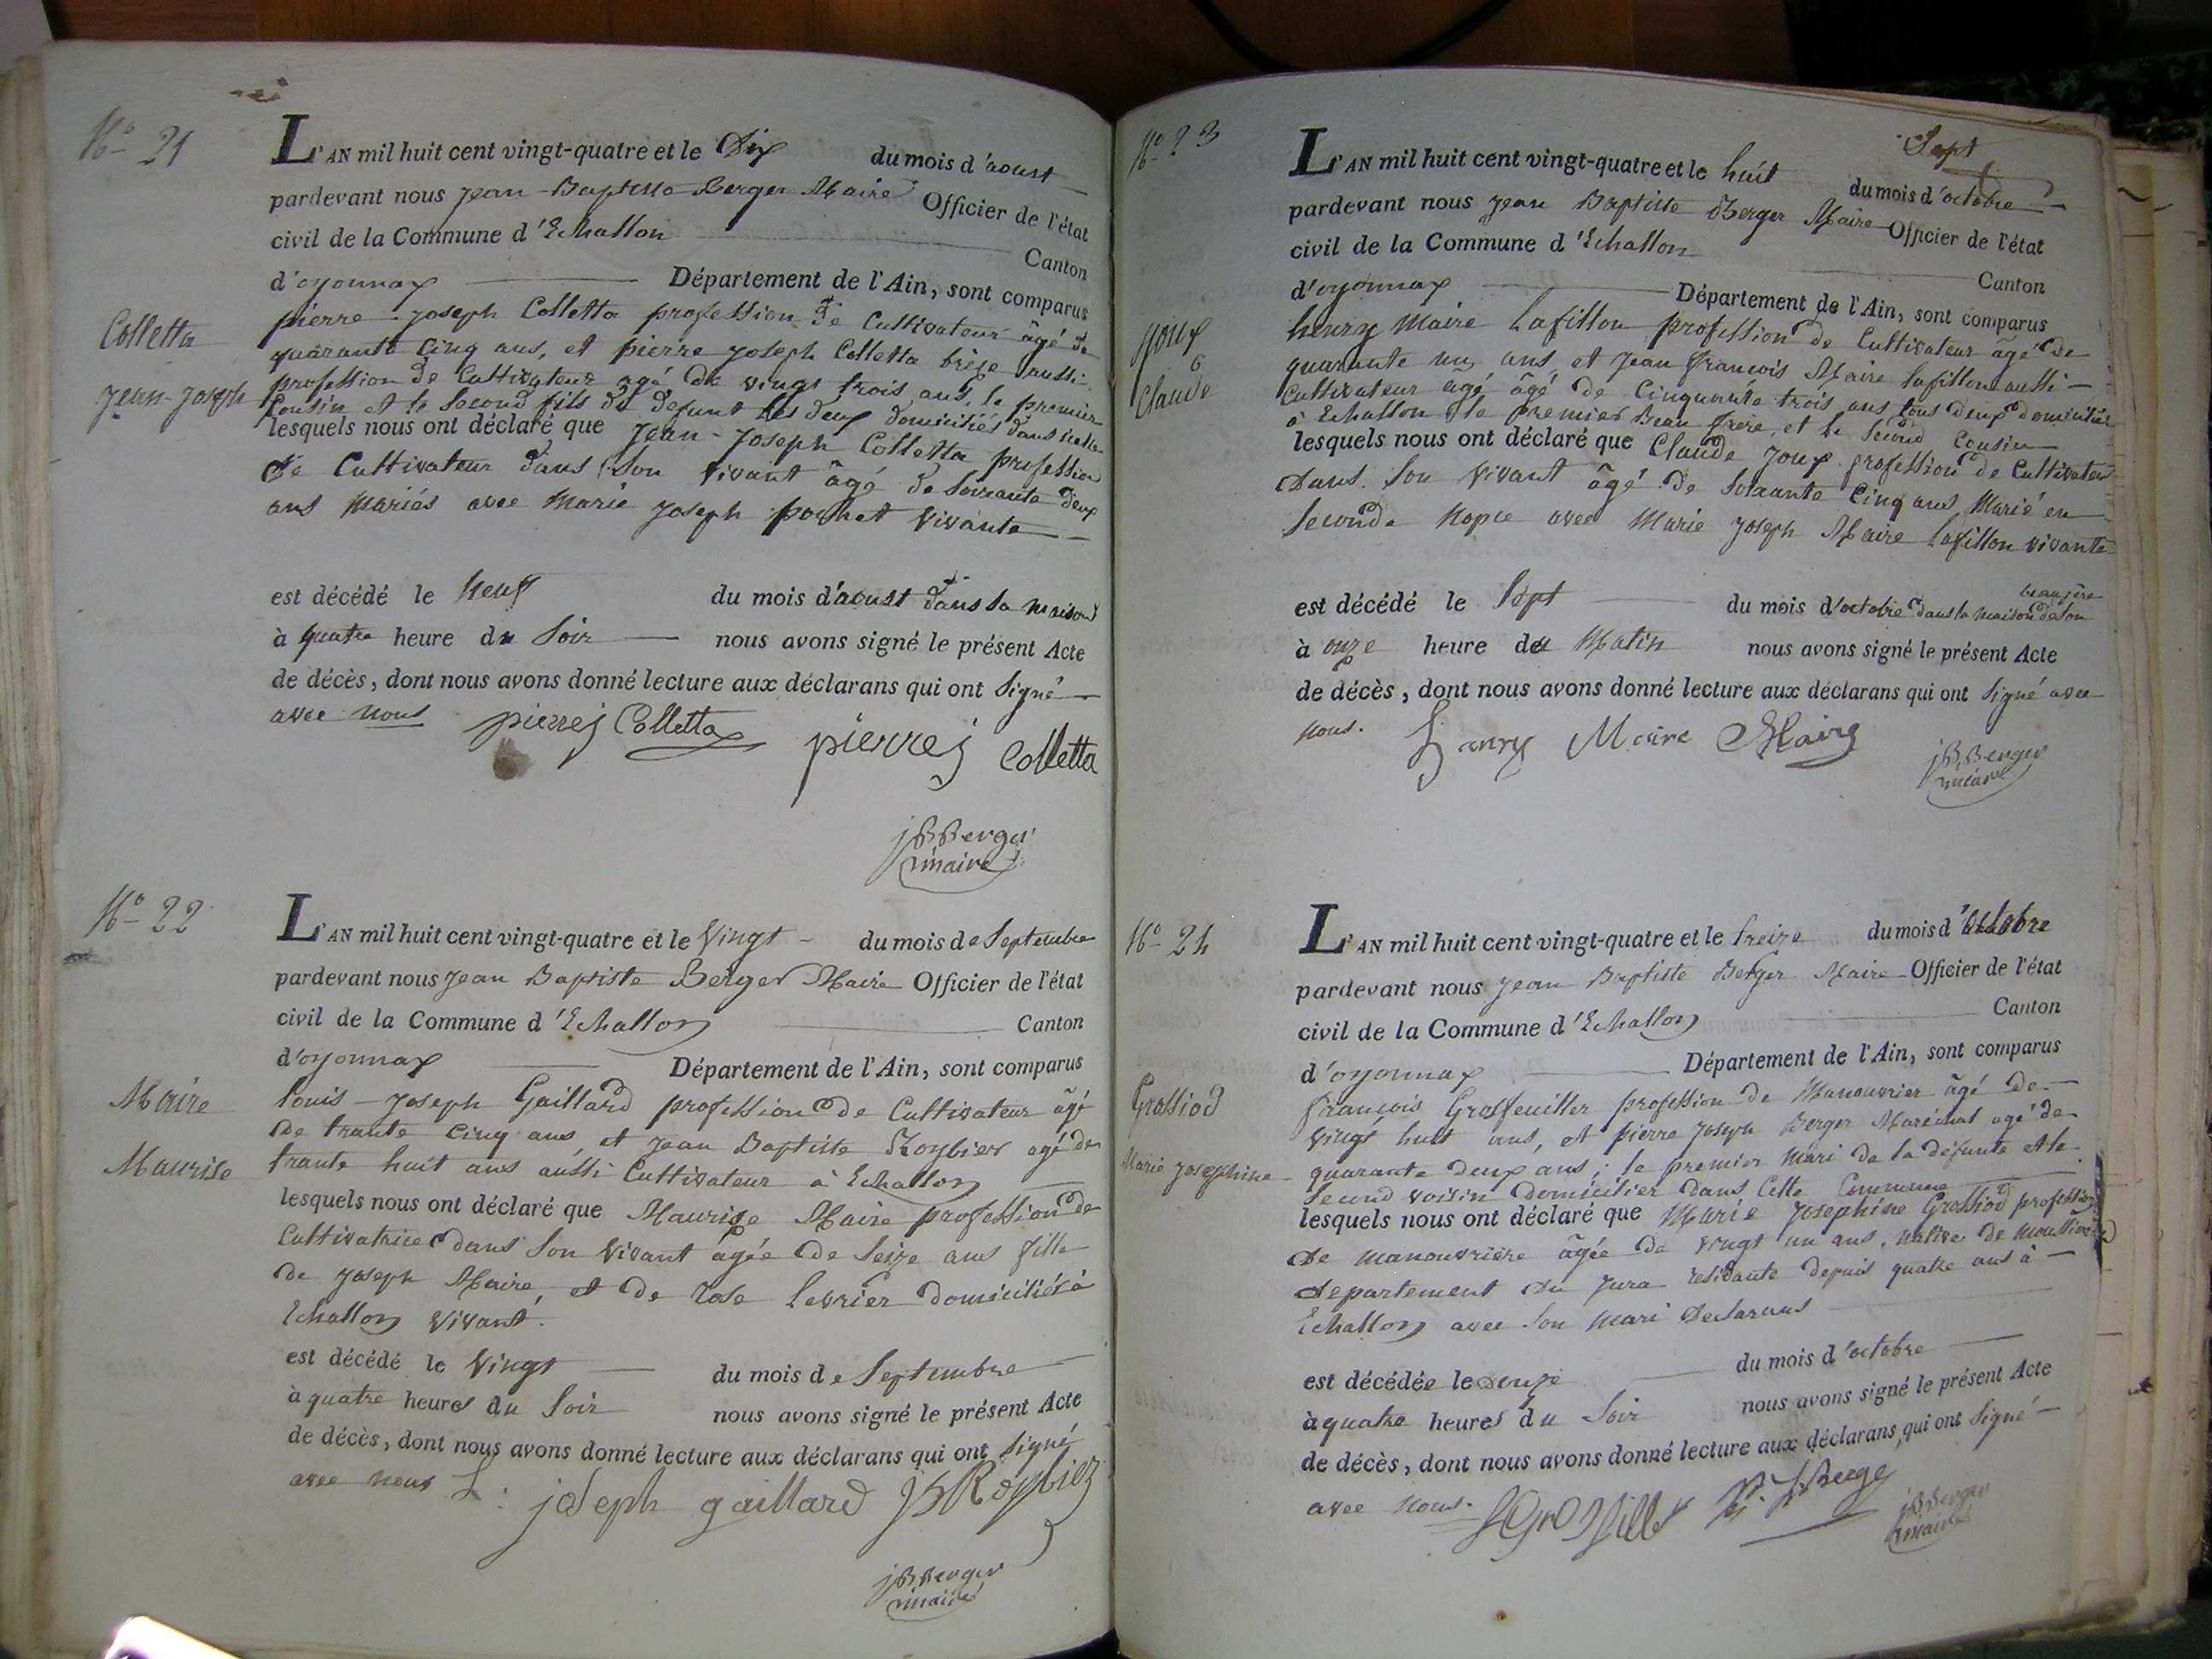 No 21
L'AN mil huit cent vingt-quatre et le Dix du mois d'aoust
pardevant nous jean-Baptiste Berger Maire Officier de l'état
civil de la Commune d'Echallon Canton
d'oyonnax Département de l'Ain, sont comparus
Colletta
pierre joseph Colletta profession de Cultivateur âgé de
quarante Cinq ans, et pierre joseph Colletta brise aussi
Jean-Joseph
profession de Cultivateur agé de vingt trois ans, le premier
Cousin et le second fils du defunt les deux domiciliés dans
lesquels nous ont déclaré que Jean-Joseph Colletta profession
de Cultivateur dans son vivant âgé de soixante deux
ans mariés avec Marie joseph pochet vivante
est décédé le neuf du mois d'aoust dans sa maison
à quatre heure du soir nous avons signé le présent Acte
de décès, dont nous avons donné lecture aux déclarans qui ont signé
avec nous pierrej Colletta pierrej Colletta
jBBerger
maire
No 22
L'AN mil huit cent vingt-quatre et le vingt du mois de Septembre
pardevant nous jean Baptiste Berger Maire Officier de l'état
civil de la Commune d'Echallon Canton
d'oyonnax Département de l'Ain, sont comparus
Maire
louis-joseph Gaillard profession de Cultivateur âgé
de trante cinq ans, et jean Baptiste Roybier agé de
Maurise
trante huit ans aussi Cultivateur à Echallon
lesquels nous ont déclaré que Maurise Maire profession de
Cultivatrice dans son vivant agée de seize ans fille
de joseph Maire, et de rose levrier domiciliés à
Echallon vivant.
est décédé le vingt du mois de Septembre
à quatre heures du soir nous avons signé le présent Acte
de décès, dont nous avons donné lecture aux déclarans qui ont signé
avec nous L: joseph gaillard JBRoybier
jBBerger
maire
No 23
Sept
L'AN mil huit cent vingt-quatre et le huit du mois d'octobre
pardevant nous jean Baptiste Berger Maire Officier de l'état
civil de la Commune d'Echallon Canton
d'oyonnax Département de l'Ain, sont comparus
joux
6
Claude
henry Maire lafillon profession de Cultivateur âgé de
quarante un ans, et jean francois Maire lafillon aussi
cultivateur agé âgé de Cinquante trois ans tous deux domicilier
à Echallon le premier Beau frere, et le second Cousin
lesquels nous ont déclaré que Claude joux profession de Cultivateur
Dans son vivant âgé de soixante Cinq ans Marié en
seconde nopce avec Marie joseph Maire lafillon vivante
beaupère
est décédé le sept du mois d'octobre dans la maison de son
à onze heure du Matin nous avons signé le présent Acte
de décès, dont nous avons donné lecture aux déclarans qui ont signé avec
nous. henry Maire Maire
jBBerger
maire
No 24
L'AN mil huit cent vingt-quatre et le treize du mois d'octobre
pardevant nous jean Baptiste Berger Maire Officier de l'état
civil de la Commune d'Echallon Canton
d'oyonnax Département de l'Ain, sont comparus
Grossiod
francois Grosfeuiller profession de Manouvrier âgé de
vingt huit ans, et pierre joseph Berger Maréchal agé de
Marie josephine
quarante deux ans; le premier mari de la defunte et le
second voisin domicilier dans Cette Commune
lesquels nous ont déclaré que Marie josephine Grossiod profession
de manouvrière âgée de vingt un ans, native de
departement du jura residante depuis quatre ans à
Echallon avec son mari declarant
est décédée le douze du mois d'octobre
à quatre heures du soir nous avons signé le présent Acte
de décès, dont nous avons donné lecture aux déclarans, qui ont signé
avec nous.
jBBerger
maire